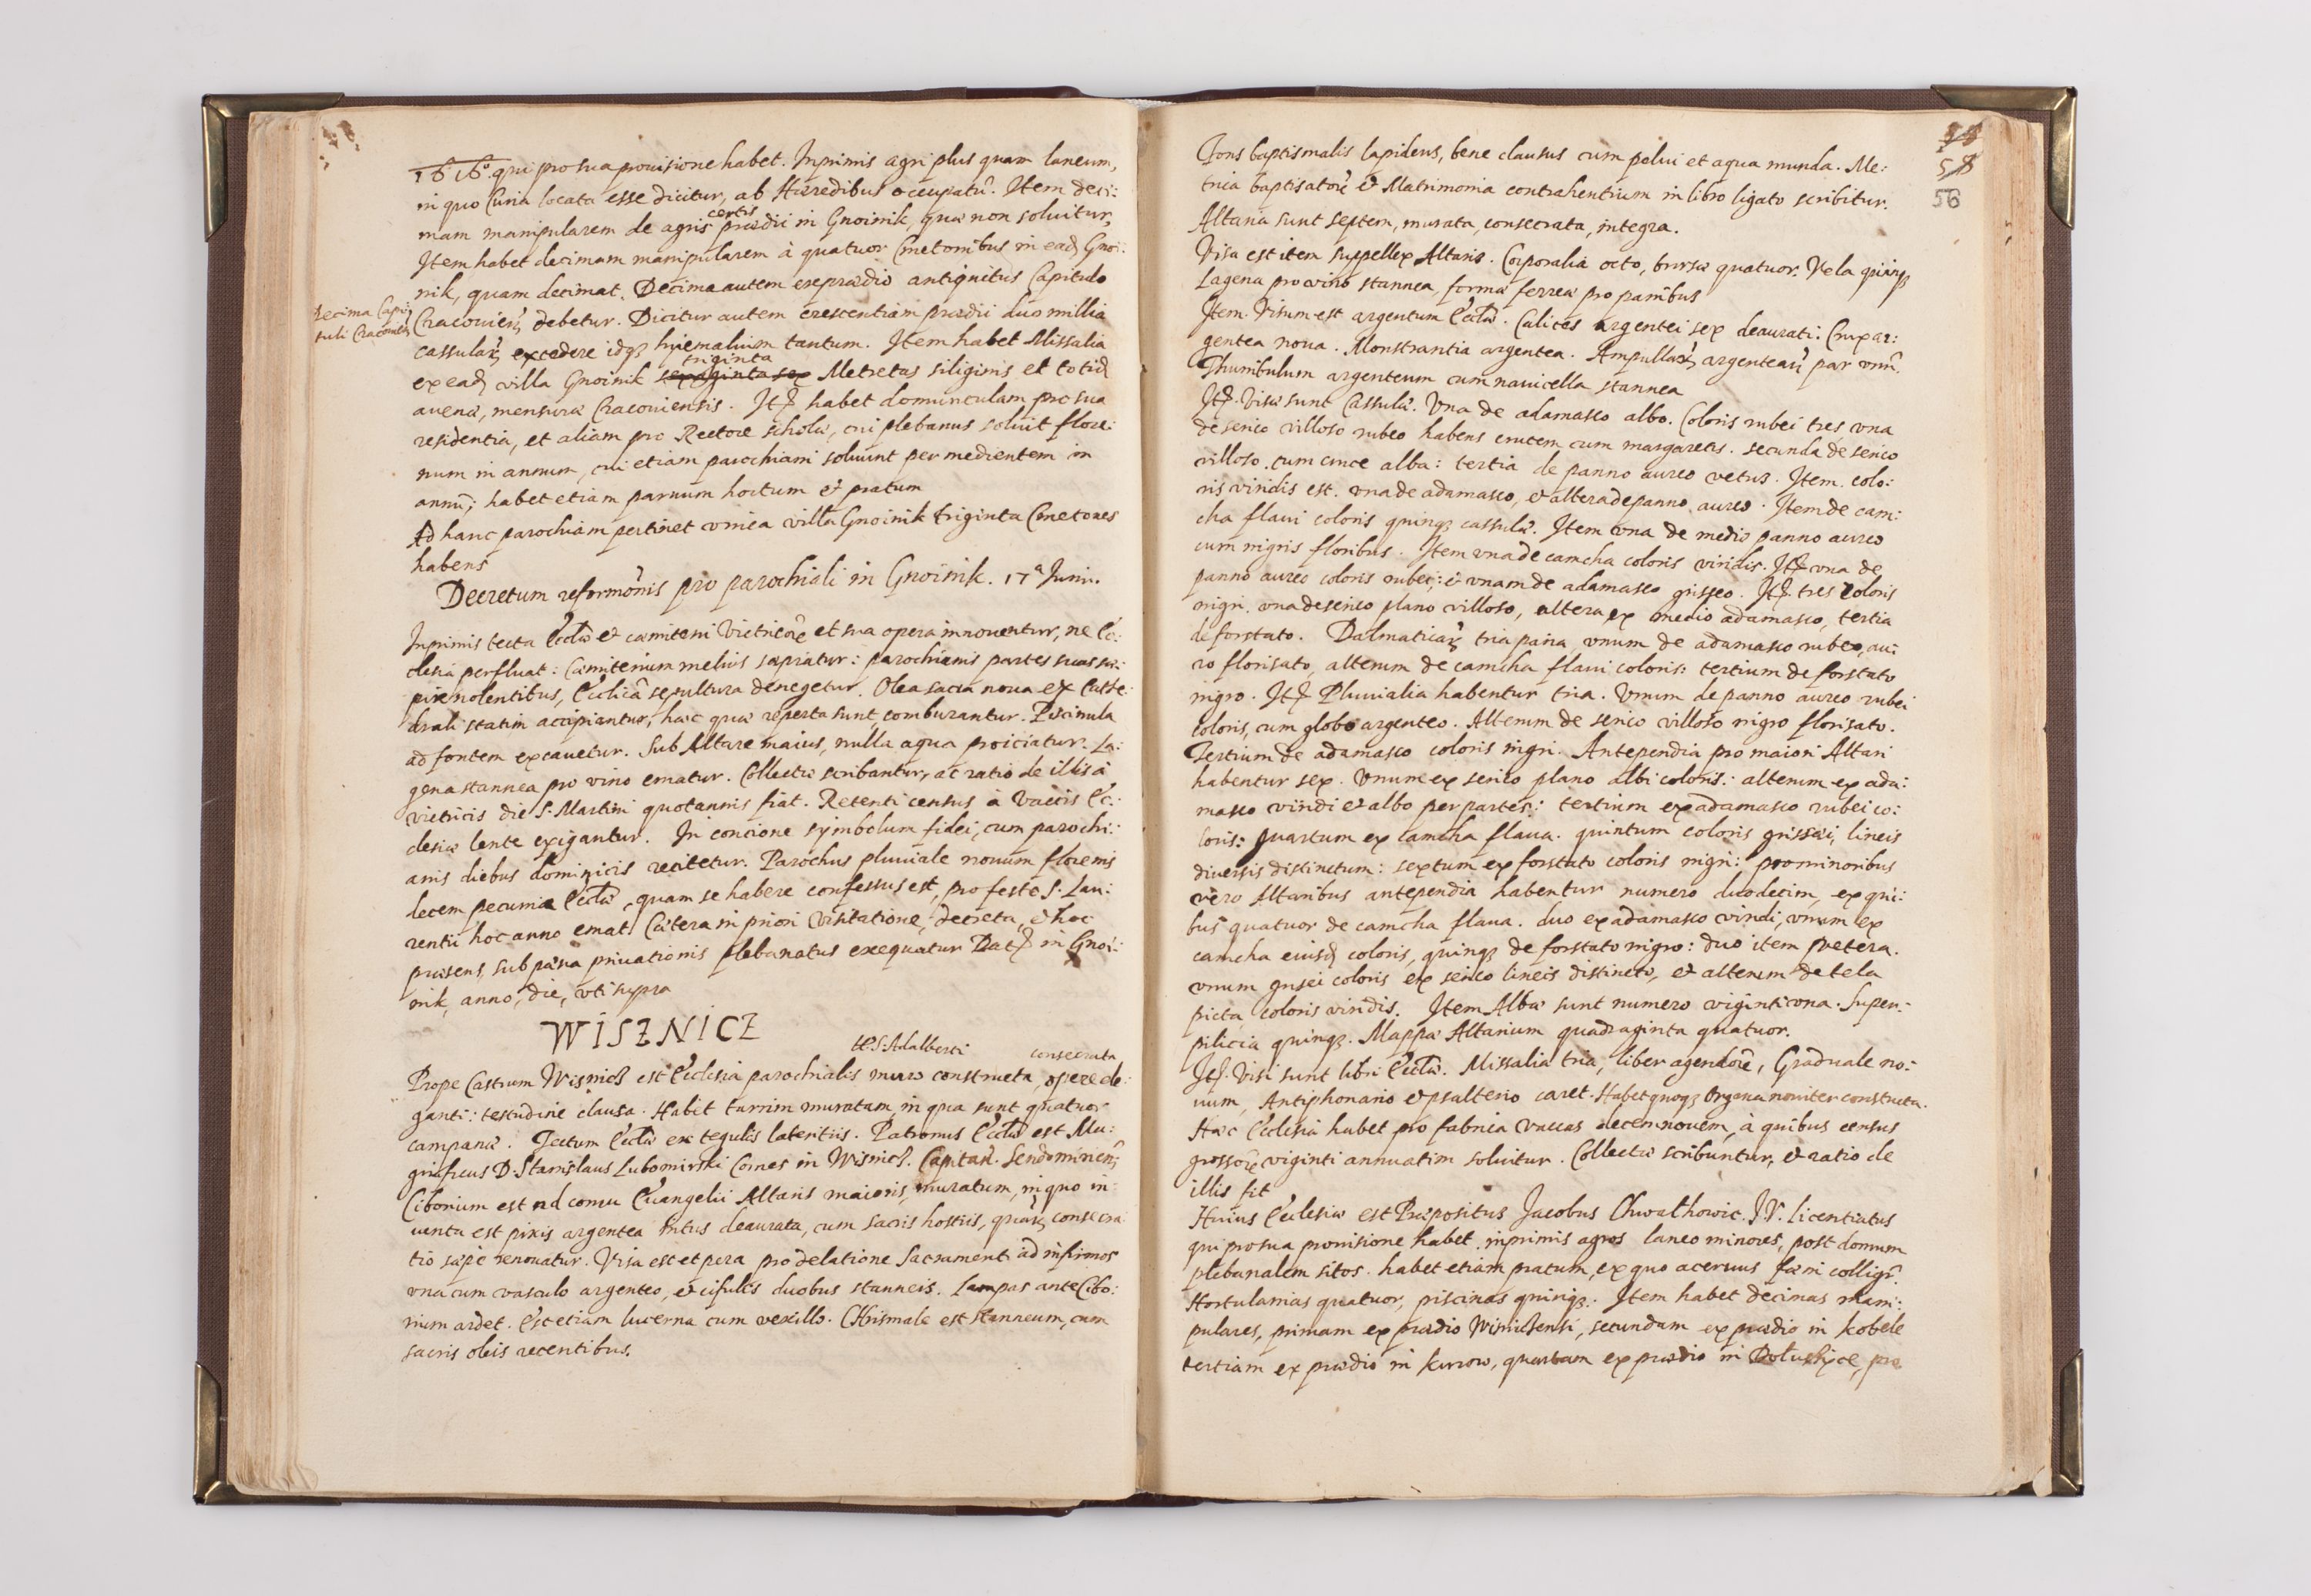 1616º qui pro sua prouisione habet. Inprimis agri plus quam laneum,
in quo Curia locata esse dicitur, ab Hæredibus occupatū. Item deci:
mam manipularem de agris certis prædii in Gnoinik, quæ non soluitur,
Item habet decimam manipularem à quatuor Cmetonibus in ead Gnoi:
nik, quam decimat. Decima autem ex prædio antiquitus Capitulo
Decima Capi:
tuli Cracouień
Cracouień debetur. Dicitur autem crescentiam prædii duo millia
cassularȝ excedere idqȝ hyemalium tantum. Item habet Missalia
ex ead villa Gnoinik sexaginta sex triginta Metretas siliginis et totid
auenæ, mensuræ Cracouiensis. Itē habet domunculam pro sua
residentia, et aliam pro Rectore scholæ, cui plebanus soluit flore:
num in annum, cui etiam parochiani soluunt per medientem in
annū; habet etiam paruum hortum et pratum
Ad hanc parochiam pertinet vnica villa Gnoinik triginta Cmetones
habens
Decretum reformōnis pro parochiali in Gnoinik. 17ª Junii.
Inprimis tecta Ecclæ et cæmiterii Vitricorȩ et sua opera innouentur, ne Ec:
clesia perfluat: Cæmiterium melius sæpiatur: parochianis partes suas sæ:
pire nolentibus, Ecclicā sepultura denegetur. Olea sacra noua ex Cathe:
drali statim accipiantur, hæc quæ reperta sunt, comburantur. Piscinula
ad fontem excauetur. Sub Altare maius, nulla aqua proiiciatur. La:
gena stannea pro vino ematur. Collectæ scribantur, ac ratio de illis à
vitricis die S. Martini quotannis fiat. Retenti census à Vaccis Ec:
clesiæ lente exigantur. In concione symbolum fidei, cum parochi:
anis diebus dominicis recitetur. Parochus pluuiale nouum florenis
decem pecuniæ Ecclæ, quam se habere confessus est, pro festo S. Lau:
rentii hoc anno emat. Cætera in priori Visitatione, decreta, et hoc
præsens, sub pæna priuationis plebanatus exequatur Datȝ in Gnoi:
nik, anno, die, vti supra
WISZNICZ
tit S: Adalberti consecrata
Prope Castrum Wisnicz est Ecclesia parochialis muro constructa, opere ele:
ganti: testudine clausa. Habet turrim muratam, in qua sunt quatuor
campanæ. Tectum Ecclæ ex tegulis lateritiis. Patronus Ecclæ est Ma:
gnificus D. Stanislaus Lubomirski Comes in Wisnicz. Capitań. Sendomirień;
Ciborium est ad cornu Euangelii Altaris maioris, muratum, in quo in:
uenta est pixis argentea intus deaurata, cum sacris hostiis, quarȝ consecra
tio sæpe renouatur. Visa est et pera pro delatione Sacramenti ad infirmos
vna cum vasculo argenteo, et cifulis duobus stanneis. Lampas ante Cibo:
rium ardet. Est etiam lucerna cum vexillo. Chrismale est stanneum, cum
sacris oleis recentibus.
58
56
Fons baptismalis lapideus, bene clausus cum pelui et aqua munda. Me:
trica baptisatorȩ et Matrimonia contrahentium in libro ligato scribitur.
Altaria sunt septem, murata, consecrata, integra.
Visa est item suppellex Altaris. Corporalia octo, bursæ quatuor. Vela quinqȝ
Lagena pro vino stannea, forma ferrea pro panibus
Item. Visum est argentum Ecclæ. Calices argentei sex deaurati: Crux ar:
gentea noua. Monstrantia argentea. Ampullarȝ argentearȝ par vnū.
Thuribulum argenteum cum nauicella stannea
Itē. Visæ sunt Cassulæ. Vna de adamasco albo. Coloris rubei tres, vna
de serico villoso rubeo habens crucem cum margaretis. secunda de serico
villoso. cum cruce alba: tertia de panno aureo vetus. Item. colo:
ris viridis est. vna de adamasco, et altera de panno aureo. Item de cam:
cha flaui coloris quinqȝ cassulæ. Item vna de medio panno aureo
cum nigris floribus. Item vna de camcha coloris viridis. Itē vna de
panno aureo coloris rubei: et vnam de adamasco grisseo. Itē tres coloris
nigri. vna de serico plano villoso, altera ex medio adamasco, tertia
de forstato. Dalmaticarȝ tria paria, vnum de adamasco rubeo, au:
ro florisato, alterum de camcha flaui coloris: tertium de forstato
nigro. Itē Pluuialia habentur tria. Vnum de panno aureo rubei
coloris, cum globo argenteo. Alterum de serico villoso nigro florisato.
Tertium de adamasco coloris nigri. Antependia pro maiori Altari
habentur sex. Vnum ex serico plano albi coloris: alterum ex ada:
masco viridi et albo per partes: tertium ex adamasco rubei co:
loris: quartum ex camcha flaua. quintum coloris grissæi, lineis
diuersis distinctum: sextum ex forstato coloris nigri: pro minoribus
vero Altaribus antependia habentur numero duodecim, ex qui:
bus quatuor de camcha flaua. duo ex adamasco viridi, vnum ex
camcha eiusd coloris, quinqȝ de forstato nigro: duo item prætera.
vnum grisei coloris ex serico lineis distincto, et alterum de tela
picta coloris viridis. Item Albæ sunt numero viginti vna. Super:
pilicia quinqȝ. Mappæ Altarium quadraginta quatuor.
Itē. Visi sunt libri Ecclæ. Missalia tria, liber agendorȩ, Graduale no:
uum, Antiphonario et psalterio caret. Habet quoqȝ Organa nouiter constructa.
Hæc Ecclesia habet pro fabrica vaccas decem nouem, à quibus census
grossorȩ viginti annuatim soluitur. Collectæ scribuntur, et ratio de
illis fit
Huius Ecclesiæ est Præpositus Jacobus Chwalhowic. J.V. licentiatus
qui pro sua prouisione habet. inprimis agros laneo minores, post domum
plebanalem sitos. habet etiam pratum, ex quo aceruus fæni colligiȓ.
Hortulanias quatuor, piscinas quinqȝ. Item habet decimas mani:
pulares, primam ex prædio Wisnicensi, secundam ex prædio in Kobele
tertiam ex prædio in Kurow, quartam ex prædio in Dołuszyce, præ